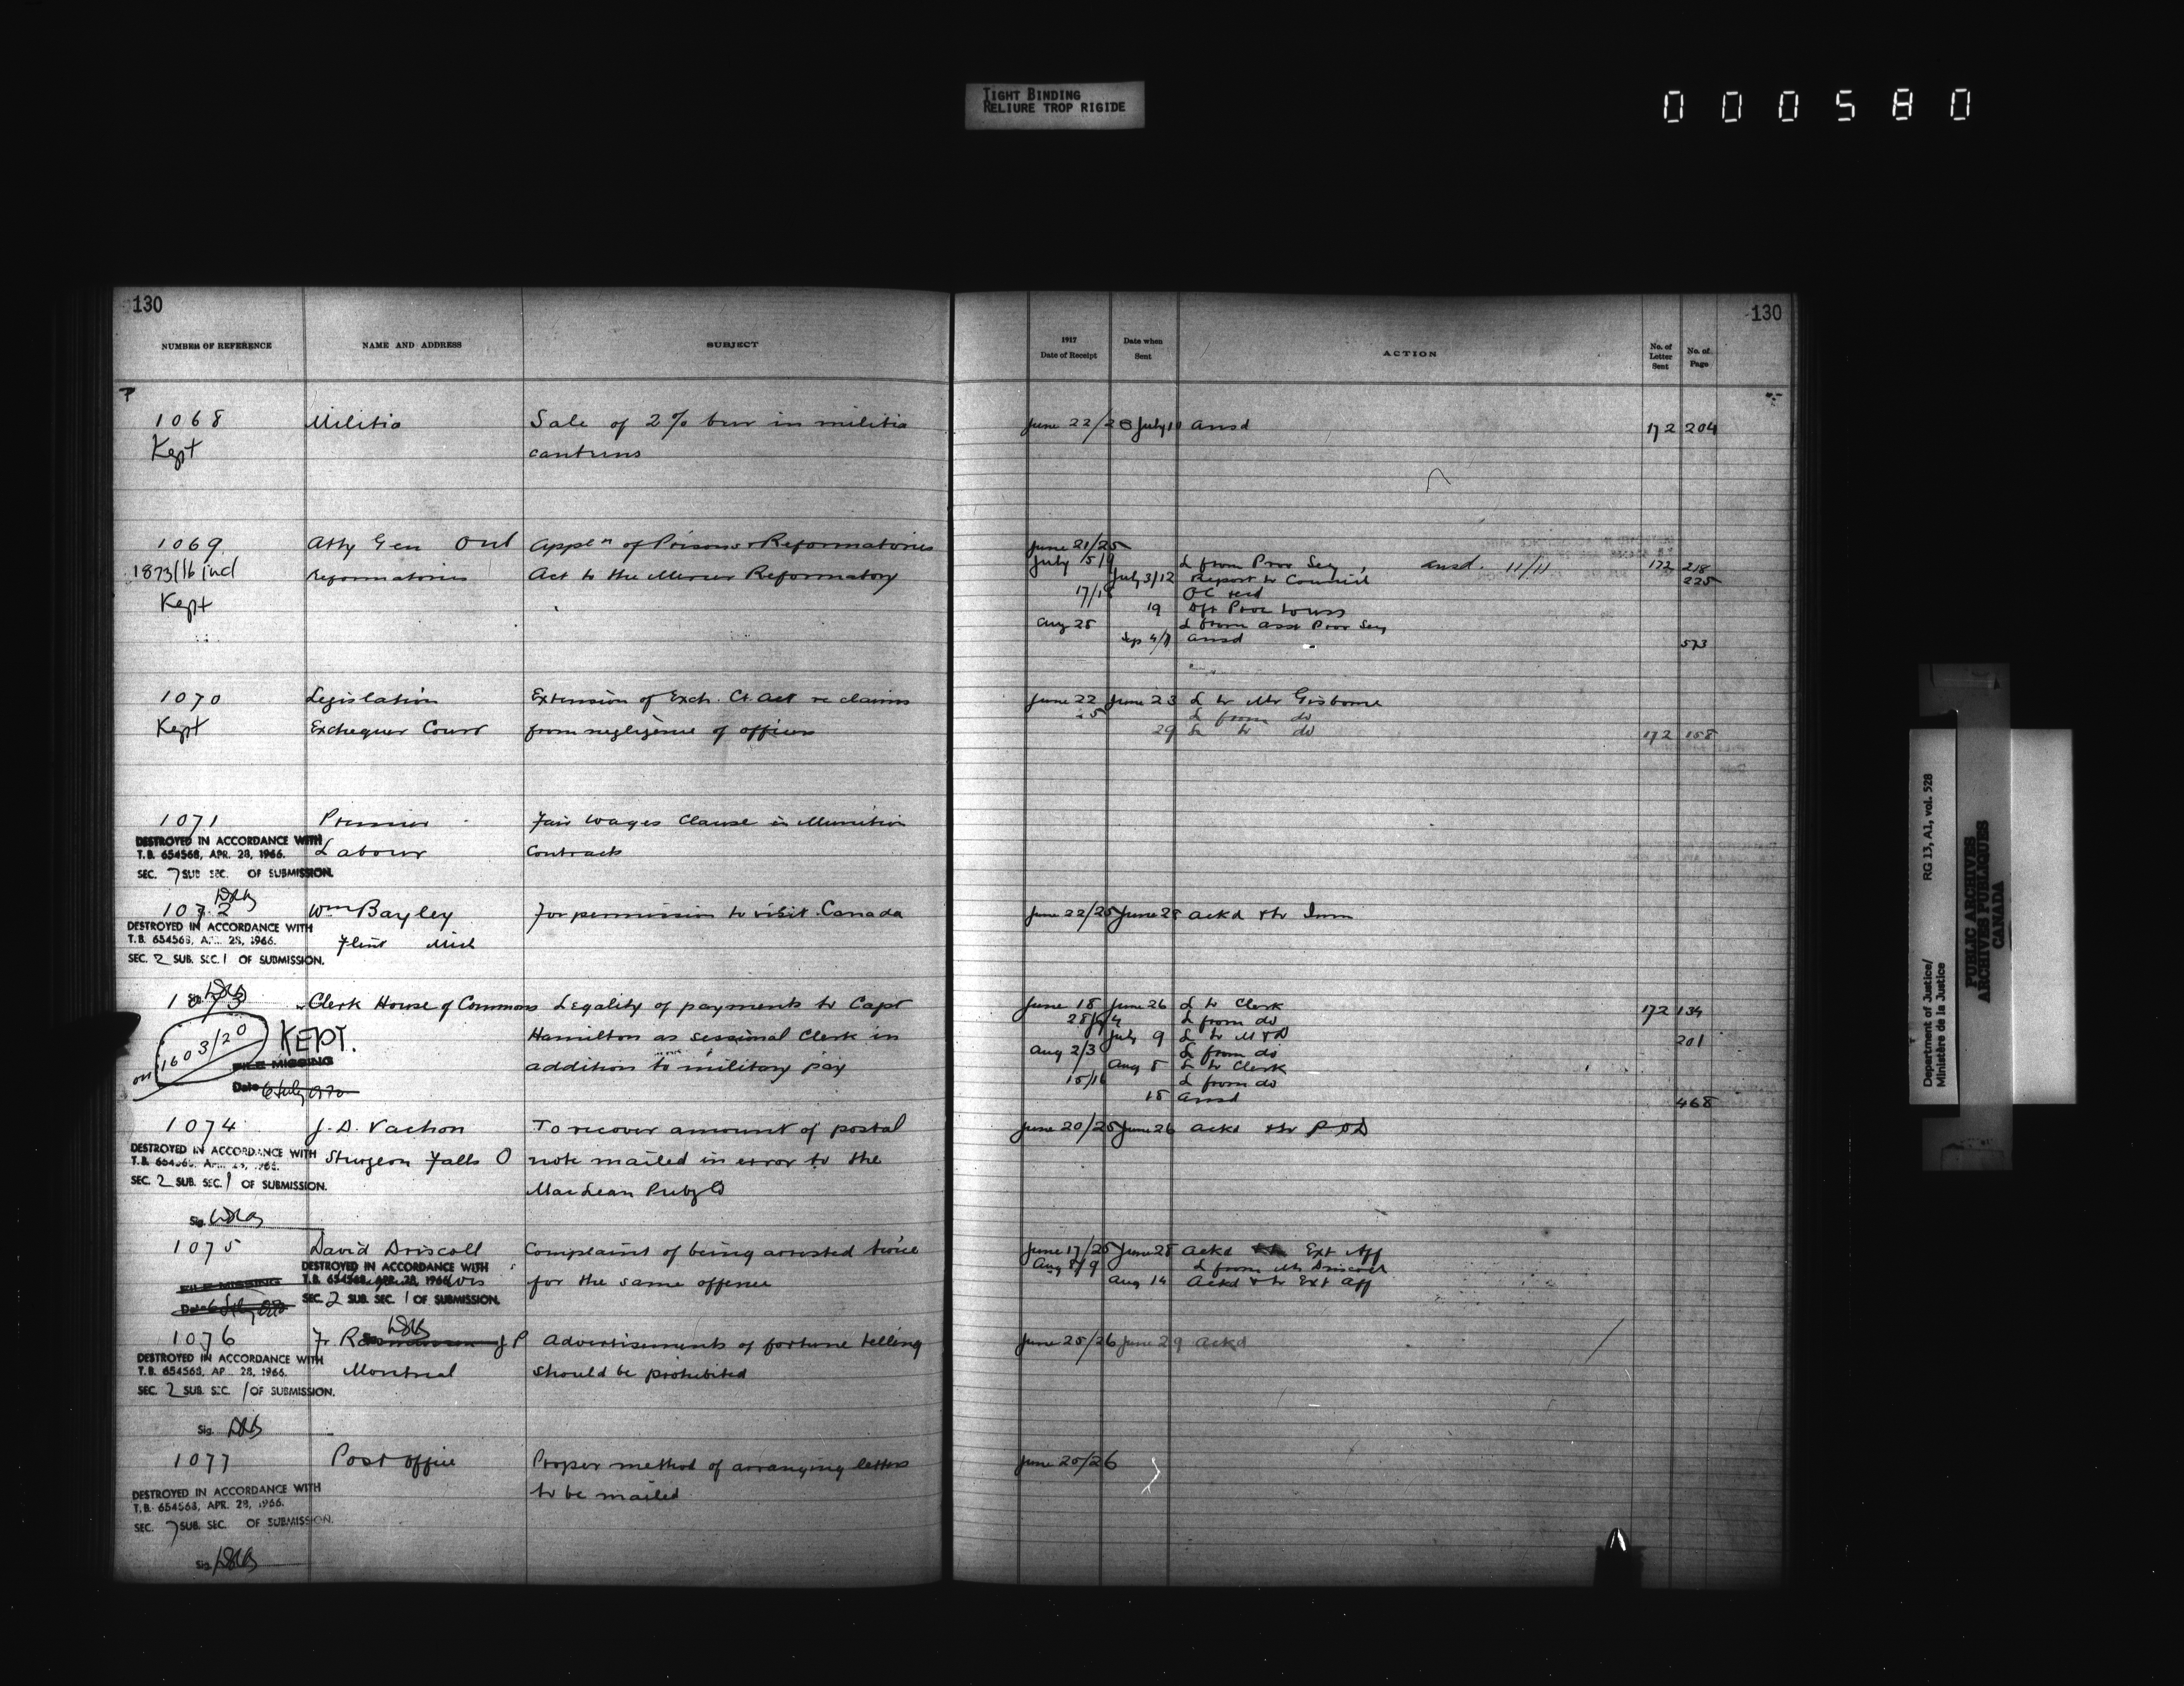 TIGHT BINDING
RELIURE TROP RIGIDE
000580
130
NUMBER OF REFERENCE NAME AND ADDRESS SUBJECT
1068 Militia Sale of 2% beer in militia
Kept canteens
1069 Atty Gen Ont Appln of Prisons & Reformatories
1873/16 incl Reformatories Act to the Mercer Reformatory
Kept
1070 Legislation Extension of Exch. Ct. Act re claims
Kept Exchequer Court from negligence of officers
1071 Premier Fair Wages Clause in Munition
DESTROYED IN ACCORDANCE WITH
T.B. 654568, APR. 28, 1966. Labour Contracts
SEC. 7 SUB SEC. OF SUBMISSION.
1072 Wm Bayley For permission to visit Canada
DESTROYED IN ACCORDANCE WITH
T.B. 654568, APR. 28, 1966. Flint Mich
SEC. 2 SUB. SEC. 1 OF SUBMISSION.
1073 Clerk House of Commons Legality of payments to Capt
on 1603/20 KEPT. Hamilton as sessional Clerk in
FILE MISSING addition to military pay
Date 6 July 1970
1074 J. D. Vachon To recover amount of postal
DESTROYED IN ACCORDANCE WITH
T.B. 654568, APR. 28, 1966. Sturgeon Falls O note mailed in error to the
SEC. 2 SUB. SEC. 1 OF SUBMISSION. MacLean Pubg Co
Sig.
1075 David Driscoll Complaint of being arrested twice
DESTROYED IN ACCORDANCE WITH
FILE MISSING T.B. 654568, APR. 28, 1966. for the same offence
Date SEC. 2 SUB. SEC. 1 OF SUBMISSION.
1076 Fr. J P Advertisements of fortune telling
DESTROYED IN ACCORDANCE WITH
T.B. 654568, AP 28, 1966. Montreal should be prohibited
SEC. 2 SUB. SEC. 1 OF SUBMISSION.
Sig.
1077 Post Office Proper method of arranging letters
DESTROYED IN ACCORDANCE WITH to be mailed
T.B. 654568, APR. 28, 1966.
SEC. 7 SUB. SEC. OF SUBMISSION.
Sig.
130
1917
Date of Receipt Date when Sent ACTION No. of Letter Sent No. of Page
June 22/23 July 10 ansd 172 204
June 21/25
July 5/9 L from Prov Secy, ansd. 11/11 172 218
July 3/12 Report to Council 225
17/18 OC recd
19
Aug 25 L from Asst Prov Secy
Sep 4/7 ansd 573
June 22 June 23 L to Mr Gisborne
25 L from do
29 L to do 172 158
June 22/25 June 28 ackd & to Imm
June 18 June 26 L to Clerk 172 134
L from do
July 9 L to M & D 201
Aug 2/3 L from do
Aug 8 L to Clerk
15/16 L from do
18 ansd 468
June 20/25 June 26 ackd & to P O D
June 17/25 June 28 ackd Ext Aff
Aug 8/9 L from Mr Driscoll
Aug 14 Ackd & to Ext Aff
June 25/26 June 29 Ackd
June 20/26
Department of Justice/ RG 13, A1, vol. 528
Ministère de la Justice
PUBLIC ARCHIVES
ARCHIVES PUBLIQUES
CANADA